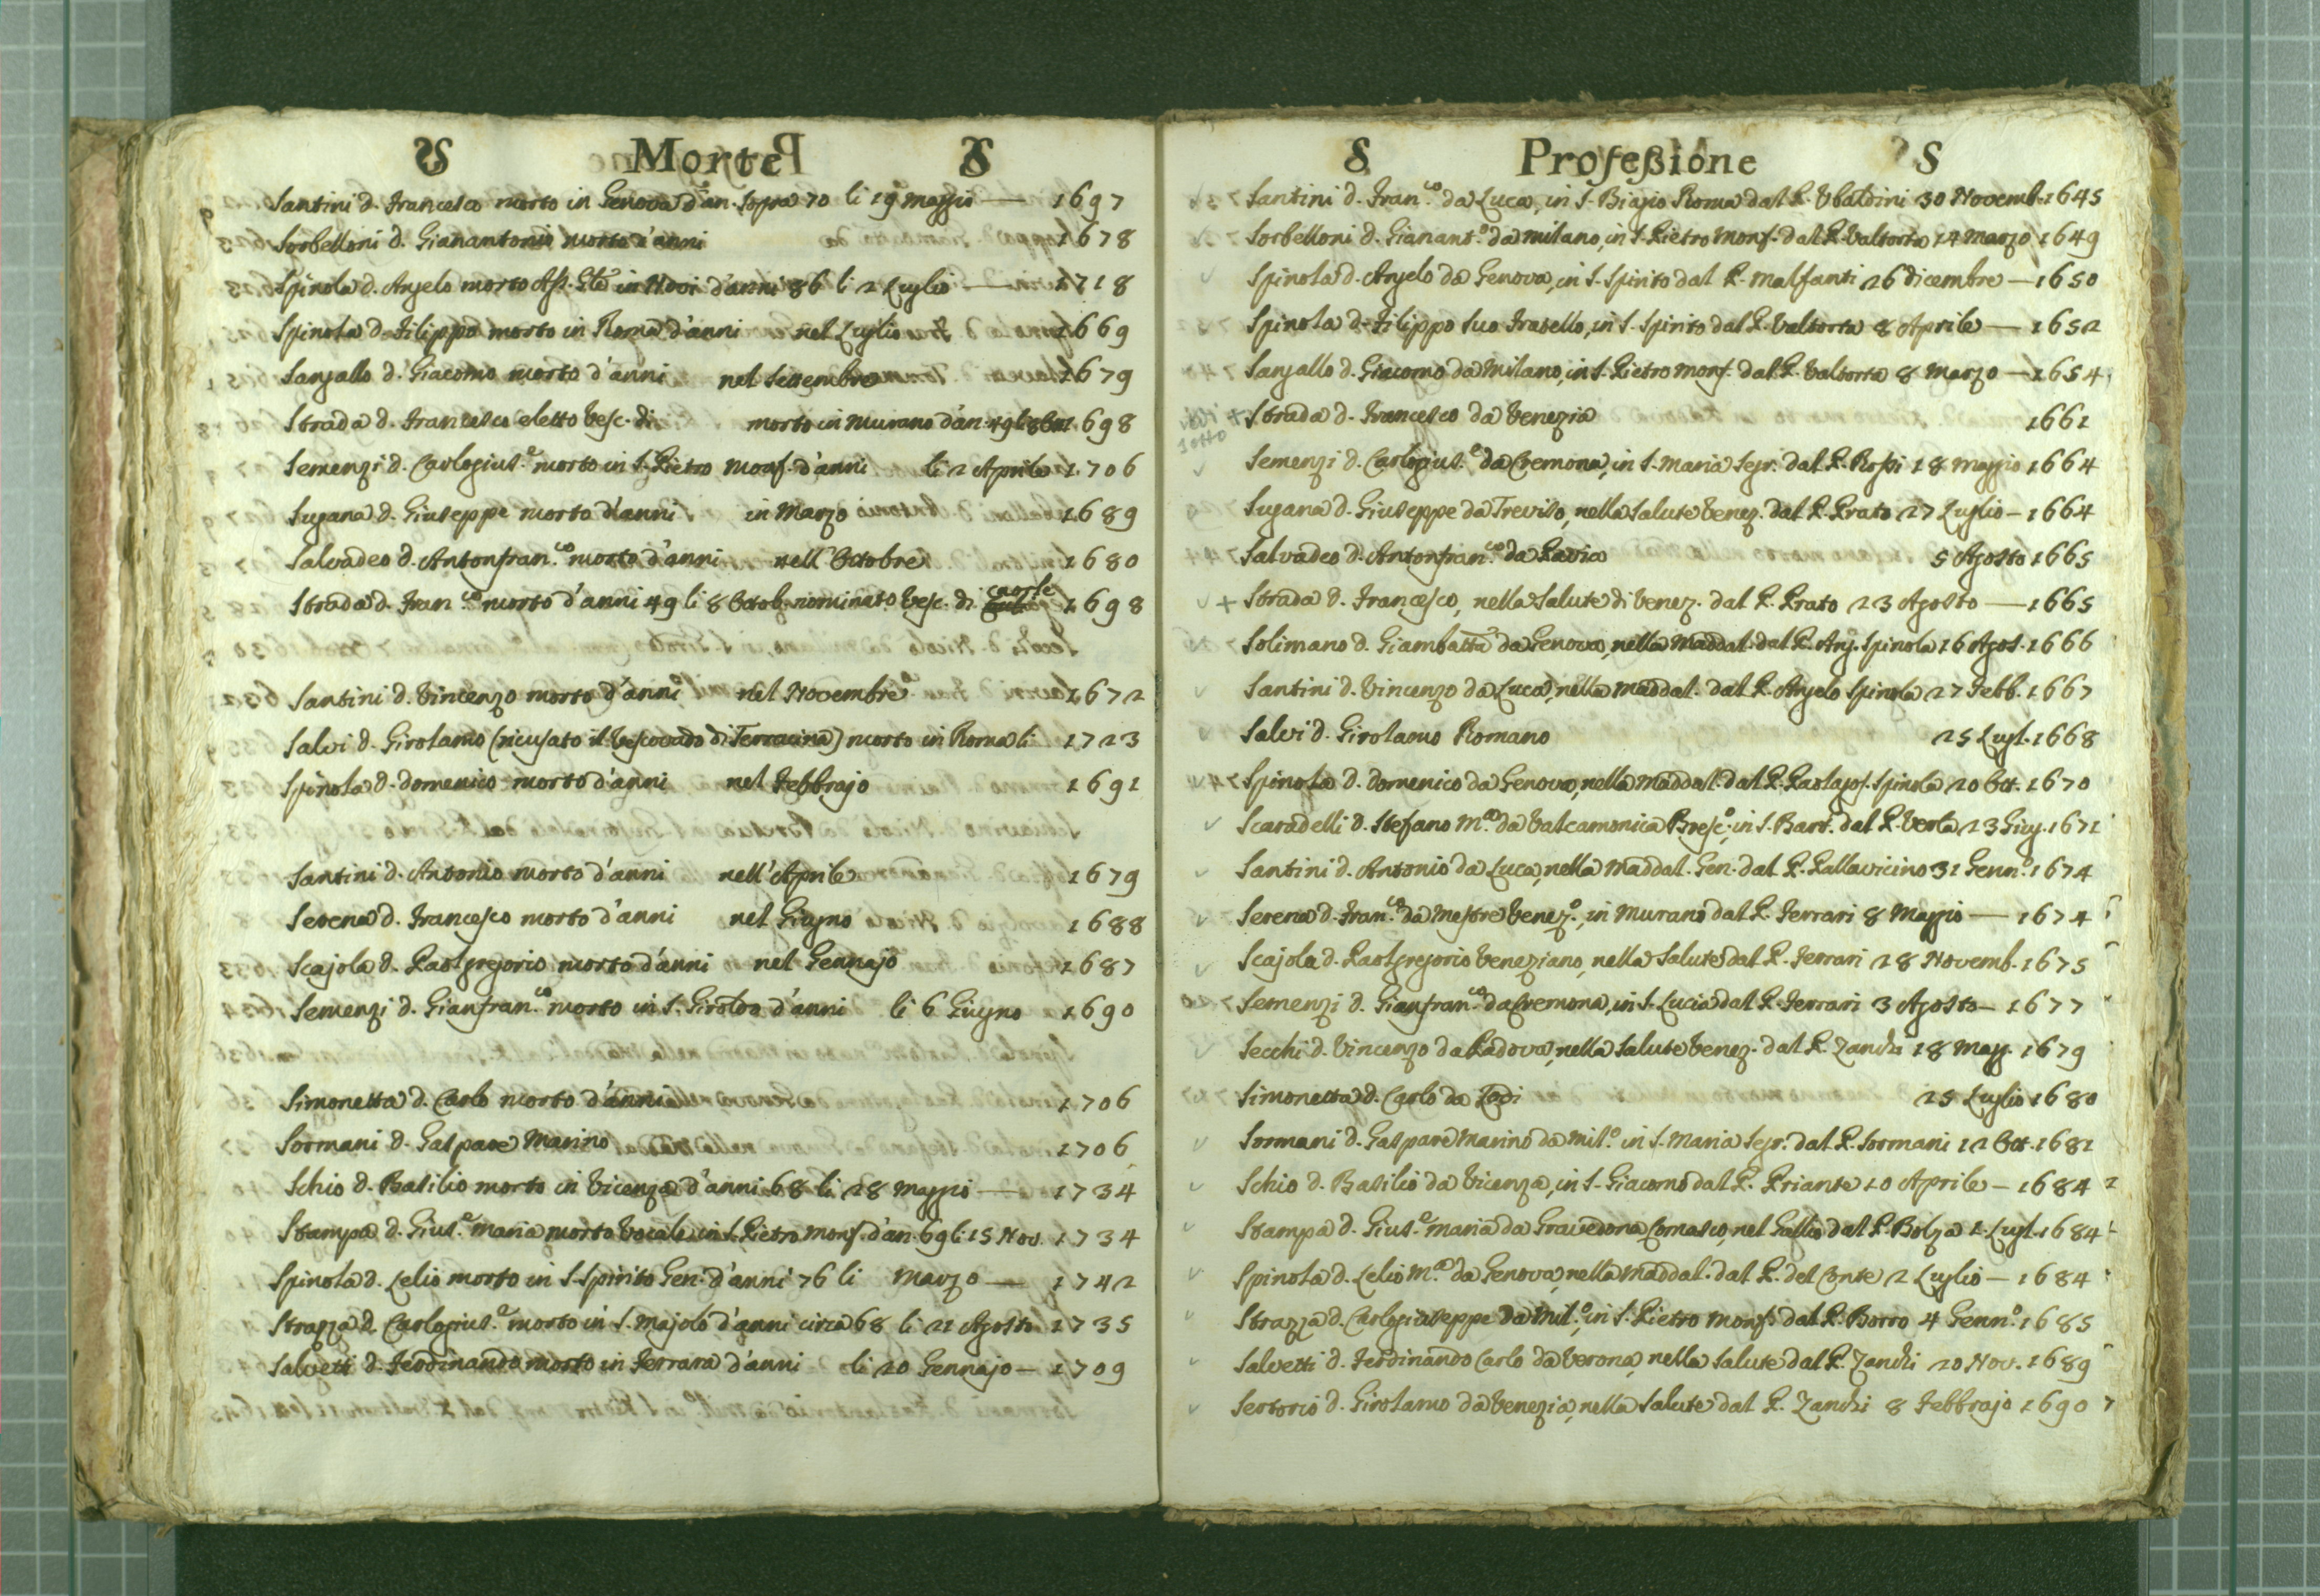 S Morte S
Santini d. Francesco morto in Genova d'an. sopra 70 li 19 Maggio — 1697
Sorbelloni d. Gianantonio morto d'anni 1678
Spinola d. Angelo morto Ass. Gle in Novi d'anni 86 li 2 Luglio — 1718
Spinola d. Filippo morto in Roma d'anni nel Luglio 1669
Sangallo d. Giacomo morto d'anni nel Settembre 1679
Strada d. Francesco eletto Vesc. di morto in Murano d'an. 49 li 8 1698
Semenzi d. Carlogius.e morto in S. Pietro Monf. d'anni li 2 Aprile 1706
Sugana d. Giuseppe morto d'anni in Marzo 1689
Salvadeo d. Antonfran.co morto d'anni nell'Octobre 1680
Strada d. Fran.co morto d'anni 49 li 8 Octob. nominato Vesc. di Caorle 1698
Santini d. Vincenzo morto d'anni nel Novembre 1672
Salvi d. Girolamo (ricusato il Vescovado di Terracina) morto in Roma li 1723
Spinola d. Domenico morto d'anni nel Febbrajo 1691
Santini d. Antonio morto d'anni nell'Aprile 1679
Serena d. Francesco morto d'anni nel Giugno 1688
Scajola d. Paolgregorio morto d'anni nel Gennajo 1687
Semenzi d. Gianfran.co morto in S. Girolдо d'anni li 6 Giugno 1690
Simonetta d. Carlo morto d'anni 1706
Sormani d. Gaspare Marino 1706
Schio d. Basilio morto in Vicenza d'anni 68 li 28 Maggio — 1734
Stampa d. Gius.e Maria morto Vocale in S. Pietro Monf. d'an. 69 li 15 Nov. 1734
Spinola d. Lelio morto in S. Spirito Gen. d'anni 76 li Marzo — 1742
Strazza d. Carlogius.e morto in S. Majolo d'anni circa 68 li 21 Agosto 1735
Salvetti d. Ferdinando morto in Ferrara d'anni li 20 Gennajo — 1709
S Professione S
Santini d. Fran.co da Luca, in S. Biagio Roma dal P. Ubaldini 30 Novemb. 1645
Sorbelloni d. Gianant.o da Milano, in S. Pietro Monf. dal P. Valtorta 14 Marzo 1649
Spinola d. Angelo da Genova, in S. Spirito dal P. Malfanti 26 Dicembre — 1650
Spinola d. Filippo suo fratello, in S. Spirito dal P. Valtorta 8 Aprile — 1652
Sangallo d. Giacomo da Milano, in S. Pietro Monf. dal P. Valtorta 8 Marzo — 1654
sotto + Strada d. Francesco da Venezia 1661
Semenzi d. Carlogius.e da Cremona, in S. Maria Segr. dal P. Rossi 18 Maggio 1664
Sugana d. Giuseppe da Treviso, nella Salute Venez. dal P. Prato 27 Luglio — 1664
Salvadeo d. Antonfran.co da Pavia 5 Agosto 1665
+ Strada d. Francesco, nella Salute di Venez. dal P. Prato 23 Agosto — 1665
Solimano d. Giambatta da Genova, nella Maddal. dal P. Ang. Spinola 16 Agos. 1666
Santini d. Vincenzo da Luca, nella Maddal. dal P. Angelo Spinola 27 Febb. 1667
Salvi d. Girolamo Romano 25 Lugl. 1668
Spinola d. Domenico da Genova, nella Maddal. dal P. Spinola 20 Ott. 1670
Scaradelli d. Stefano M.co da Valcamonica Bresc.o, in S. Bart. dal P. Verta 23 Giug. 1671
Santini d. Antonio da Luca, nella Maddal. Gen. dal P. Pallavicino 31 Genn.o 1674
Serena d. Fran.co da Mestre Venez.o, in Murano dal P. Ferrari 8 Maggio — 1674
Scajola d. Paolgregorio Veneziano, nella Salute dal P. Ferrari 28 Novemb. 1675
Semenzi d. Gianfran.co da Cremona, in S. Lucia dal P. Ferrari 3 Agosto — 1677
Secchi d. Vincenzo da Padova, nella Salute Venez. dal P. Zanchi 18 Magg. 1679
Simonetta d. Carlo da Lodi 25 Luglio 1680
Sormani d. Gaspare Marino da Mil.o in S. Maria Segr. dal P. Sormani 12 Ott. 1681
Schio d. Basilio da Vicenza, in S. Giacomo dal P. Priante 10 Aprile — 1684
Stampa d. Gius.e Maria da Gravedona Comasco, nel Gallio dal P. Bolza 1. Lugl. 1684
Spinola d. Lelio M.co da Genova, nella Maddal. dal P. del Conte 2 Luglio — 1684
Strazza d. Carlogiuseppe da Mil.o, in S. Pietro Monf. dal P. Borro 4 Genn.o 1685
Salvetti d. Ferdinando Carlo da Verona, nella Salute dal P. Zanchi 20 Nov. 1689
Sertorio d. Girolamo da Venezia, nella Salute dal P. Zanchi 8 Febbrajo 1690